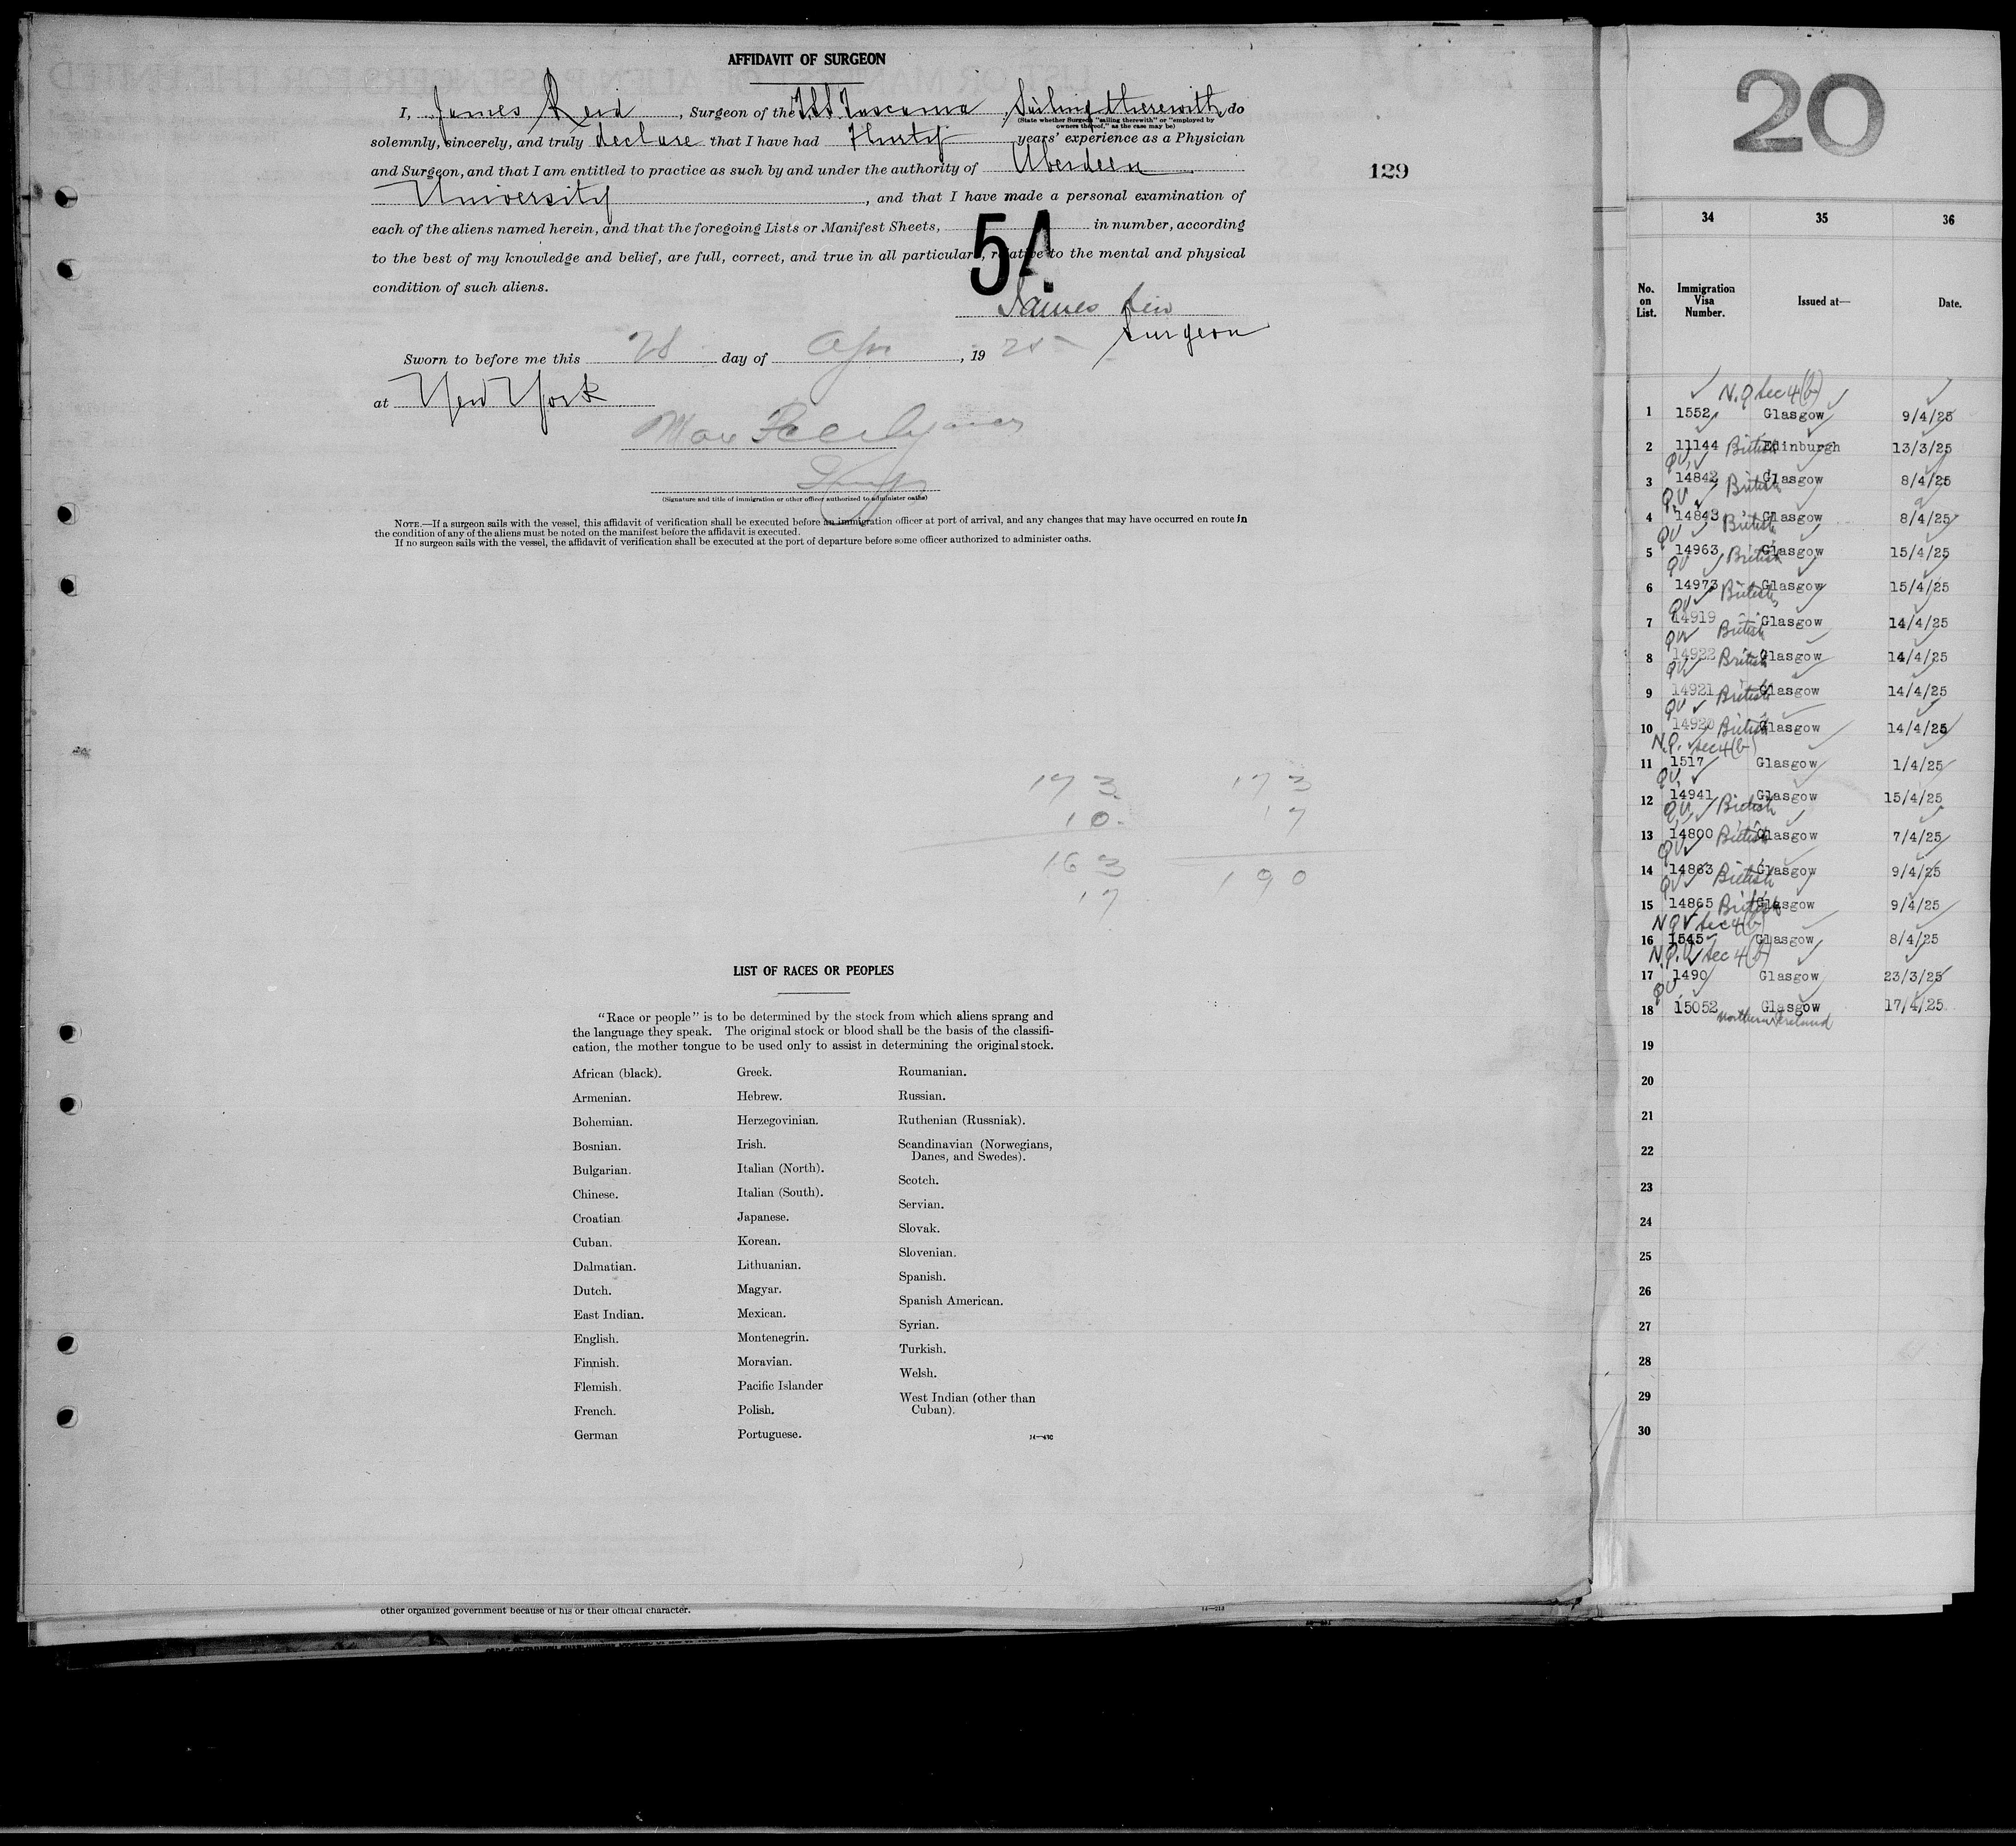 AFFIDAVIT OF SURGEON
I, James Reid, Surgeon of the T.S.S. Tuscania, Sailing therewith, do
(State whether Surgeon "sailing therewith" or "employed by
owners thereof," as the case may be)
solemnly, sincerely, and truly declare that I have had Thirty years' experience as a Physician
and Surgeon, and that I am entitled to practice as such by and under the authority of Aberdeen
University, and that I have made a personal examination of
each of the aliens named herein, and that the foregoing Lists or Manifest Sheets, in number, according
54
to the best of my knowledge and belief, are full, correct, and true in all particulars, relative to the mental and physical
condition of such aliens.
James Reid
Surgeon
Sworn to before me this 28 day of Apr, 1925
at New York
(Signature and title of immigration or other officer authorized to administer oaths)
NOTE.—If a surgeon sails with the vessel, this affidavit of verification shall be executed before an immigration officer at port of arrival, and any changes that may have occurred en route in
the condition of any of the aliens must be noted on the manifest before the affidavit is executed.
If no surgeon sails with the vessel, the affidavit of verification shall be executed at the port of departure before some officer authorized to administer oaths.
129
173 173
10 17
163 190
17
LIST OF RACES OR PEOPLES
"Race or people" is to be determined by the stock from which aliens sprang and
the language they speak. The original stock or blood shall be the basis of the classifi-
cation, the mother tongue to be used only to assist in determining the original stock.
African (black).
Armenian.
Bohemian.
Bosnian.
Bulgarian.
Chinese.
Croatian
Cuban.
Dalmatian.
Dutch.
East Indian.
English.
Finnish.
Flemish.
French.
German
Greek.
Hebrew.
Herzegovinian.
Irish.
Italian (North).
Italian (South).
Japanese.
Korean.
Lithuanian.
Magyar.
Mexican.
Montenegrin.
Moravian.
Pacific Islander
Polish.
Portuguese.
Roumanian.
Russian.
Ruthenian (Russniak).
Scandinavian (Norwegians,
Danes, and Swedes).
Scotch.
Servian.
Slovak.
Slovenian.
Spanish.
Spanish American.
Syrian.
Turkish.
Welsh.
West Indian (other than
Cuban).
other organized government because of his or their official character.
20
34 35 36
No. on List. Immigration Visa Number. Issued at— Date.
N.Q. Sec 4(b)
1 1552 Glasgow 9/4/25
2 11144 British Edinburgh 13/3/25
QV
3 14842 British Glasgow 8/4/25
QV
4 14843 British Glasgow 8/4/25
QV
5 14963 British Glasgow 15/4/25
QV
6 14973 British Glasgow 15/4/25
QV
7 14919 British Glasgow 14/4/25
QV
8 14922 British Glasgow 14/4/25
QV
9 14921 British Glasgow 14/4/25
QV
10 14920 British Glasgow 14/4/25
N.Q. Sec 4(b)
11 1517 Glasgow 1/4/25
QV
12 14941 British Glasgow 15/4/25
QV
13 14800 British Glasgow 7/4/25
QV
14 14863 British Glasgow 9/4/25
QV
15 14865 British Glasgow 9/4/25
N.Q.V Sec 4(b)
16 1545 Glasgow 8/4/25
N.Q.V Sec 4(b)
17 1490 Glasgow 23/3/25
QV
18 15052 Glasgow 17/4/25
Northern Ireland
19
20
21
22
23
24
25
26
27
28
29
30